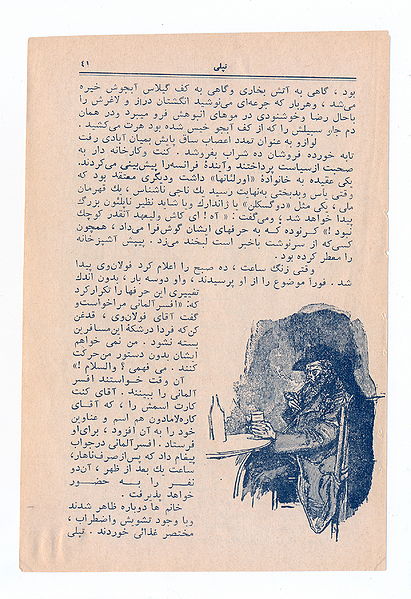 تپلی
۴۱
بود ، گاهی به آتش بخاری وگاهی به کف گیلاس آبجوش خیره
می‌شد ، وهربار که جرعه‌ای می‌نوشید انگشتان دراز و لاغرش را
باحال رضا وخوشنودی در موهای انبوهش فرو میبرد ودر همان
دم جاو سبیلش را که از کف آبجو خیس شده بود هرت می‌کشید .
لوازو به عنوان تمدد اعصاب ساق پایش بمیان آبادی رفت
تابه خورده فروشان ده شراب بفروشد . کنت وکارخانه دار به
صحبت ازسیاست پرداختند وآیندهٔ فرانسه‌را پیش‌بینی می‌کردند.
یکی عقیده به خانوادهٔ «اورلئانها» داشت ودیگری معتقد بود که
وقتی یاس وبدبختی به‌نهایت رسید یك ناجی ناشناس ، یك قهرمان
ملی ، یکی مثل «دوگسکلن» یا ژاندارك ویا شاید نظیر ناپلئون بزرگ
پیدا خواهد شد ؛ ومی‌گفت : «آه ! ای کاش ولیعهد آنقدر کوچك
نبود !» کرنوده کـه به حرفهای ایشان گوش‌فرا می‌داد ، همچون
کسی‌که از سرنوشت باخبر است لبخند می‌زد . پیپش آشپزخانه
را معطر کرده بود .
وقتی زنگ ساعت ، ده صبح را اعلام کرد فولان‌وی پیدا
شد . فورا موضوع را از او پرسیدند ، واو دوسه بار ، بدون اندك
تغییری این حرفها را تکرارکرد
که: «افسر آلمانی مراخواست‌و
گفت آقای فولان‌وی ، قدغن
کن‌که فردا درشکهٔ این‌مسافرین
بسته نشود . من نمی خواهم
ایشان بدون دستور من‌حرکت
کنند . می فهمی ؟ والسلام !»
آن وقت خـواستند افسر
آلمانی را ببینند . آقای کنت
کارت اسمش را ، که آقـای
کاره‌لامادون هم اسم و عناوین
خود را به آن افزود ، برای‌او
فرستاد . افسرآلمانی درجواب
پیغام داد که پس‌ازصرف‌ناهار،
ساعت یك بعد از ظهر ، آن‌دو
نفـر را بـه حضـور
خواهد پذیرفت .
خانم ها دوباره ظاهر شدند
وبا وجود تشویش واضطراب ،
مختصر غذائی خوردند . تپلی